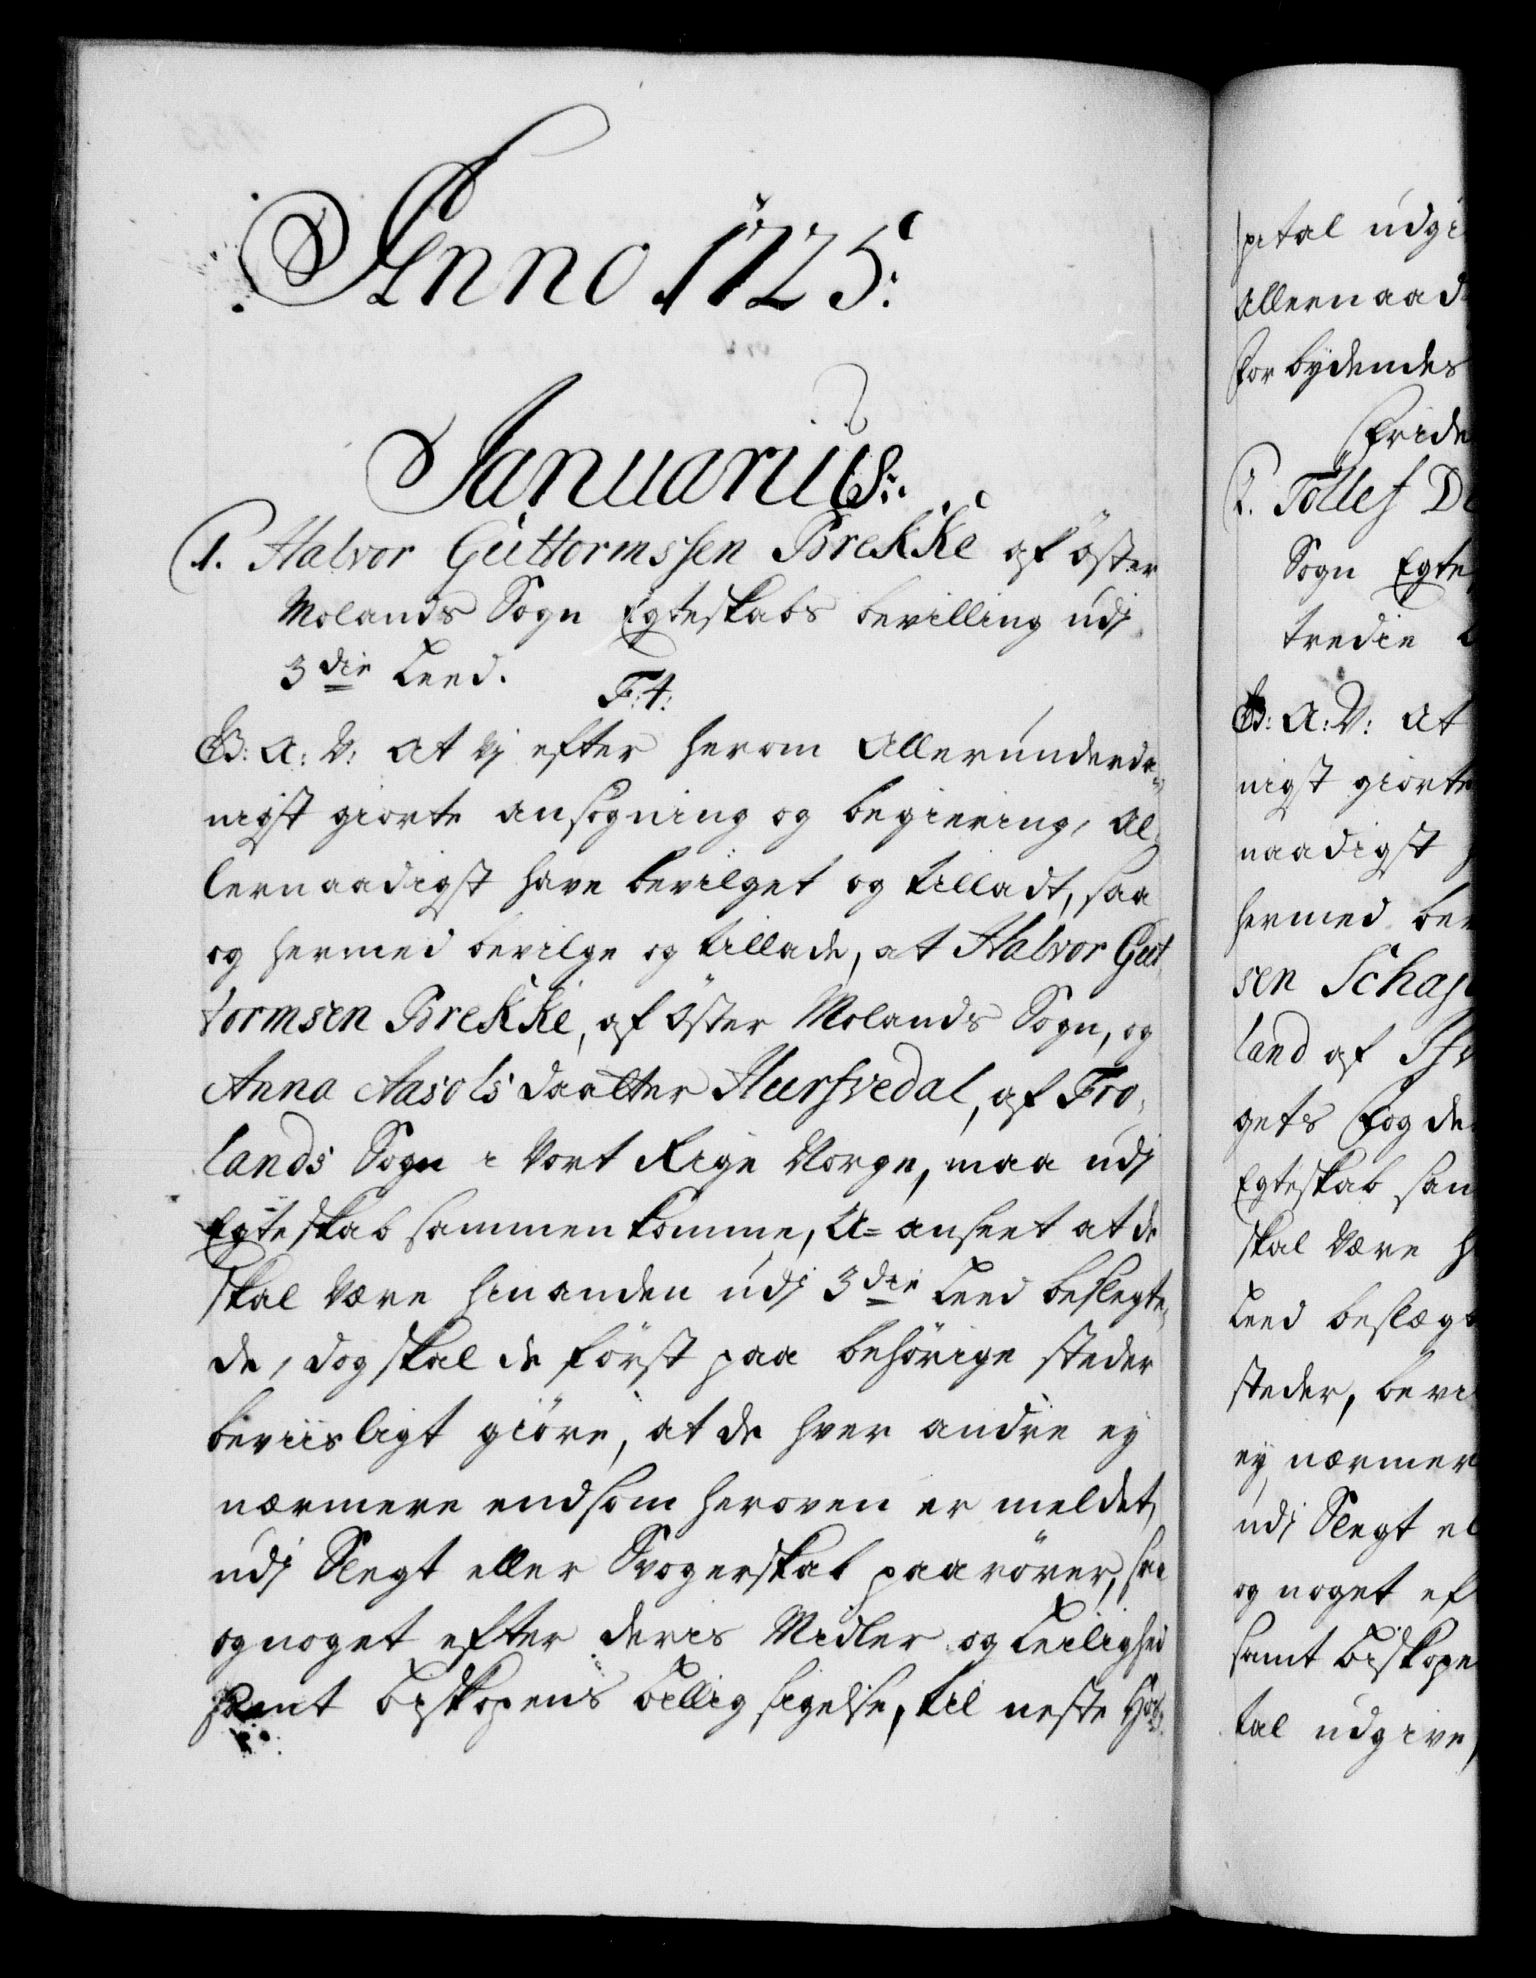 Anno 1725:
Januarius:
1. Halvor Guttormssen Brekke af Öster
Molands Sogn Egteskabs bevilling udj
3die Leed.
F: 4:
G: A: V: At Vj efter herom Allerunderda-
nigst giorte ansögning og begiering, Al-
lernaadigst have bevilget og tilladt, saa
og hermed bevilge og tillade, at Halvor Gut
tormsen Brekke, af Öster Molands Sogn, og
Anna Aasols daatter Hursvedal, af Fro-
lands Sogn i Vort Rige Norge, maa udj
Egteskab sammenkomme, U-anseet at de
skal være hinanden udj 3die Leed beslegte-
de, dog skal de först paa behörige steder
beviisligt giöre, at de hver andre ey
nærmere end som heroven er meldet,
udj Slegt eller Svogerskab paarörer, saa
og noget efter deris Midler og Leilighed
samt Biskopens billig sigelse, til neste Hos-
pital udgi
Allernaad
Forbydendes
Fride
2. Tollef D
Sogn Egte
tredie
G: A: V: At
nigst giorte
naadigst
hermed bev
sen Schaj
land af
gets Fogde
Egteskab sam
skal være h
Leed beslægt
steder, bevi
ey nærmer
udj Slegt el
og noget ef
samt Biskope
tal udgive,